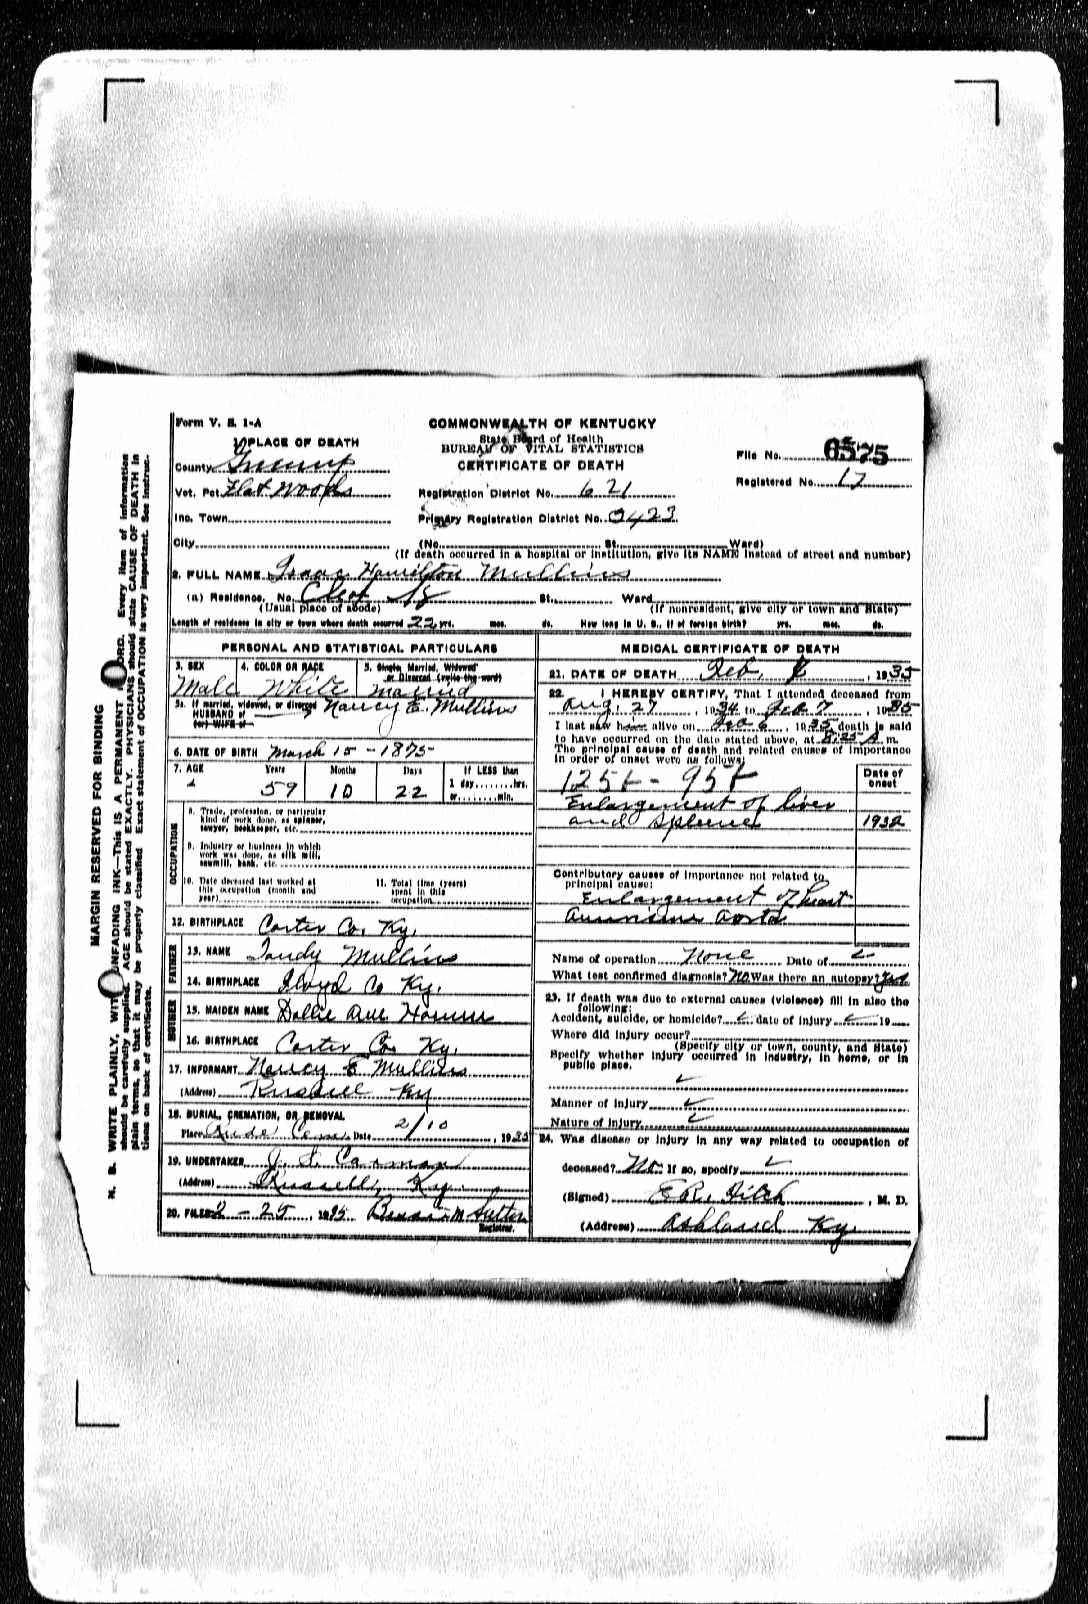 Form V. S. 1-A
COMMONWEALTH OF KENTUCKY
State Board of Health
BUREAU OF VITAL STATISTICS
CERTIFICATE OF DEATH
File No. 6575
Registered No. 17
1 PLACE OF DEATH
County Greenup
Vot. Pct. Flat Woods
Registration District No. 621
Inc. Town
Primary Registration District No. 2423
City (No. St. Ward)
(If death occurred in a hospital or institution, give its NAME instead of street and number)
2. FULL NAME Isaac Hamilton Mullins
(a) Residence. No. St. Ward
(Usual place of abode) (If nonresident, give city or town and State)
Length of residence in city or town where death occurred 22 yrs. mos. ds. How long in U. S., if of foreign birth? yrs. mos. ds.
PERSONAL AND STATISTICAL PARTICULARS
3. SEX 4. COLOR OR RACE 5. Single, Married, Widowed or Divorced (write the word)
Male White Married
5a. If married, widowed, or divorced
HUSBAND of Nancy E. Mullins
(or) WIFE of
6. DATE OF BIRTH March 15 - 1875
7. AGE Years Months Days If LESS than
59 10 22 1 day hrs.
or min.
OCCUPATION
8. Trade, profession, or particular
kind of work done, as spinner,
sawyer, bookkeeper, etc.
9. Industry or business in which
work was done, as silk mill,
sawmill, bank, etc.
10. Date deceased last worked at
this occupation (month and
year)
11. Total time (years)
spent in this
occupation
12. BIRTHPLACE Carter Co. Ky.
FATHER
13. NAME Tandy Mullins
14. BIRTHPLACE Floyd Co Ky.
MOTHER
15. MAIDEN NAME Dollie Ann
16. BIRTHPLACE Carter Co. Ky.
17. INFORMANT Nancy E Mullins
(Address) Russell Ky
18. BURIAL, CREMATION, OR REMOVAL
Place Cem. Date 2/10, 1935
19. UNDERTAKER Carman
(Address) Russell, Ky.
20. FILED 2-25, 1935 M Sutton
Registrar.
MEDICAL CERTIFICATE OF DEATH
21. DATE OF DEATH Feb. , 1935
22. I HEREBY CERTIFY, That I attended deceased from
Aug. 27, 1934 to Feb 7, 1935
I last saw him alive on Feb 6, 1935, death is said
to have occurred on the date stated above, at 8:25 A m.
The principal cause of death and related causes of importance
in order of onset were as follows:
Date of
onset
Enlargement of liver
and Spleene 1932
Contributory causes of importance not related to
principal cause:
Enlargement of heart
Aorta
Name of operation None Date of
What test confirmed diagnosis? No Was there an autopsy?
23. If death was due to external causes (violence) fill in also the
following:
Accident, suicide, or homicide? date of injury 19
Where did injury occur?
(Specify city or town, county, and State)
Specify whether injury occurred in industry, in home, or in
public place.
Manner of injury
Nature of injury
24. Was disease or injury in any way related to occupation of
deceased? No If so, specify
(Signed) Fitch, M. D.
(Address) Ashland Ky.
MARGIN RESERVED FOR BINDING
N. B. WRITE PLAINLY, WITH UNFADING INK—THIS IS A PERMANENT RECORD. Every item of information
should be carefully supplied. AGE should be stated EXACTLY. PHYSICIANS should state CAUSE OF DEATH in
plain terms, so that it may be properly classified. Exact statement of OCCUPATION is very important. See instruc-
tions on back of certificate.